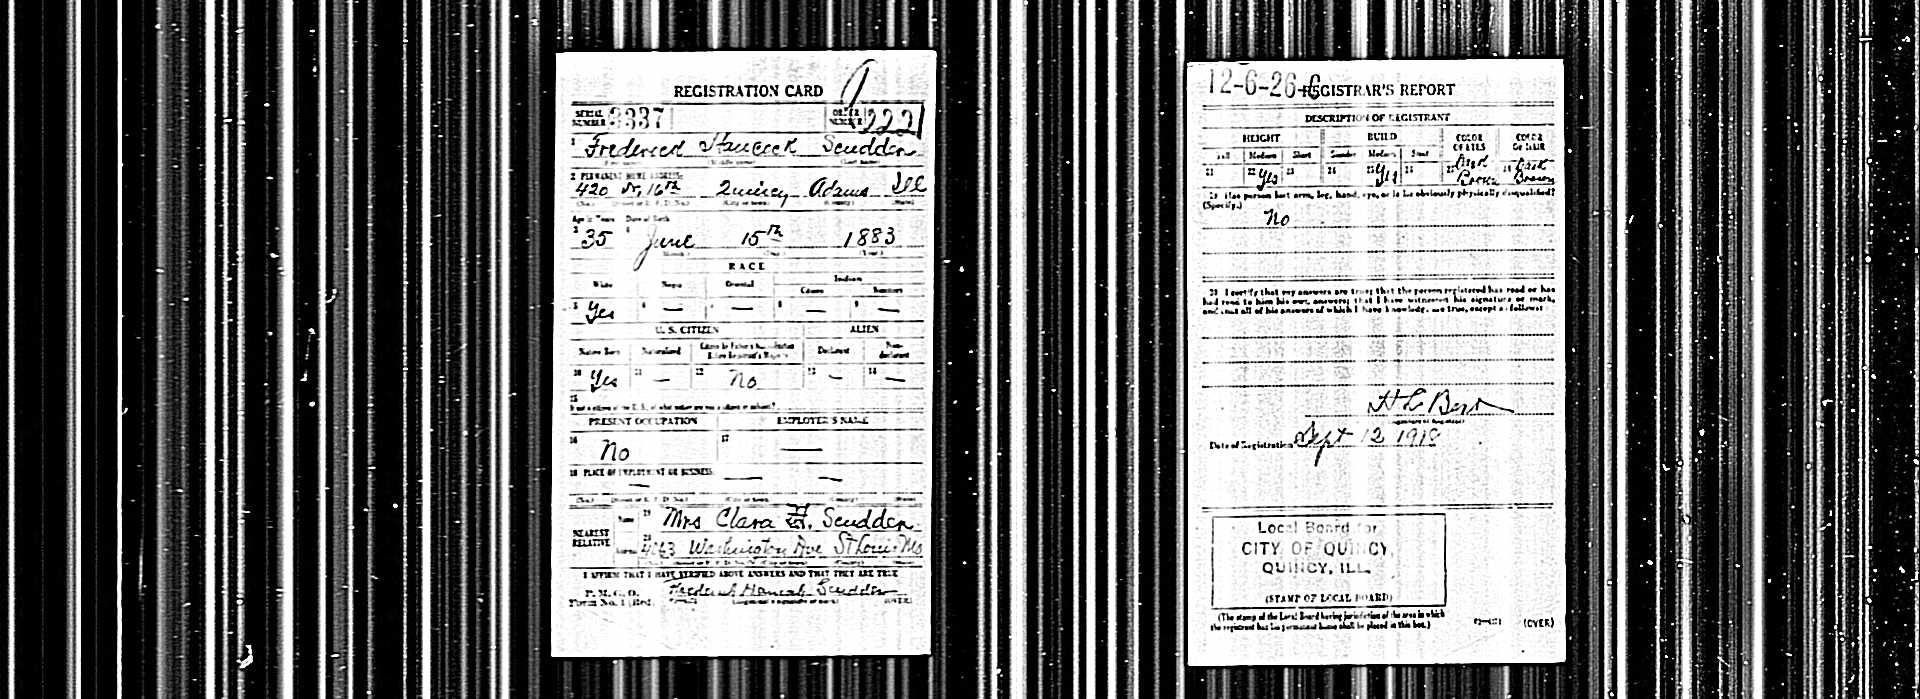 REGISTRATION CARD
SERIAL NUMBER 3337
ORDER NUMBER 222
1 Frederick Hancock Scudder
(First name) (Middle name) (Last name)
2 PERMANENT HOME ADDRESS:
420 N. 16th Quincy Adams Ill
(No.) (Street or R. F. D. No.) (City or town) (County) (State)
Age in Years Date of Birth
3 35 4 June 15th 1883
(Month.) (Day.) (Year.)
RACE
White Negro Oriental Indian
Citizen Noncitizen
5 Yes 6 — 7 — 8 — 9 —
U. S. CITIZEN ALIEN
Native Born Naturalized Citizen by Father's Naturalization Before Registrant's Majority Declarant Non-declarant
10 Yes 11 — 12 No 13 — 14 —
15
If not a citizen of the U. S., of what nation are you a citizen or subject?
PRESENT OCCUPATION EMPLOYER'S NAME
16 No 17 —
18 PLACE OF EMPLOYMENT OR BUSINESS:
— — —
(No.) (Street or R. F. D. No.) (City or town) (County) (State)
NEAREST RELATIVE
Name 19 Mrs Clara H. Scudder
Address 20 Washington Ave St Louis Mo
I AFFIRM THAT I HAVE VERIFIED ABOVE ANSWERS AND THAT THEY ARE TRUE
P. M. G. O.
Form No. 1 (Red) Frederick Hancock Scudder
(Registrant's signature or mark) (OVER)
12-6-26-C
REGISTRAR'S REPORT
DESCRIPTION OF REGISTRANT
HEIGHT BUILD COLOR OF EYES COLOR OF HAIR
Tall Medium Short Slender Medium Stout
21 22 Yes 23 24 25 Yes 26 27 Dark Brown 28 Dark Brown
29 Has person lost arm, leg, hand, eye, or is he obviously physically disqualified?
(Specify.)
No
30 I certify that my answers are true; that the person registered has read or has
had read to him his own answers; that I have witnessed his signature or mark,
and that all of his answers of which I have knowledge are true, except as follows:
(Signature of Registrar)
Date of Registration Sept 12 1918
Local Board for
CITY OF QUINCY,
QUINCY, ILL.
(STAMP OF LOCAL BOARD)
(The stamp of the Local Board having jurisdiction of the area in which
the registrant has his permanent home shall be placed in this box.)
(OVER)